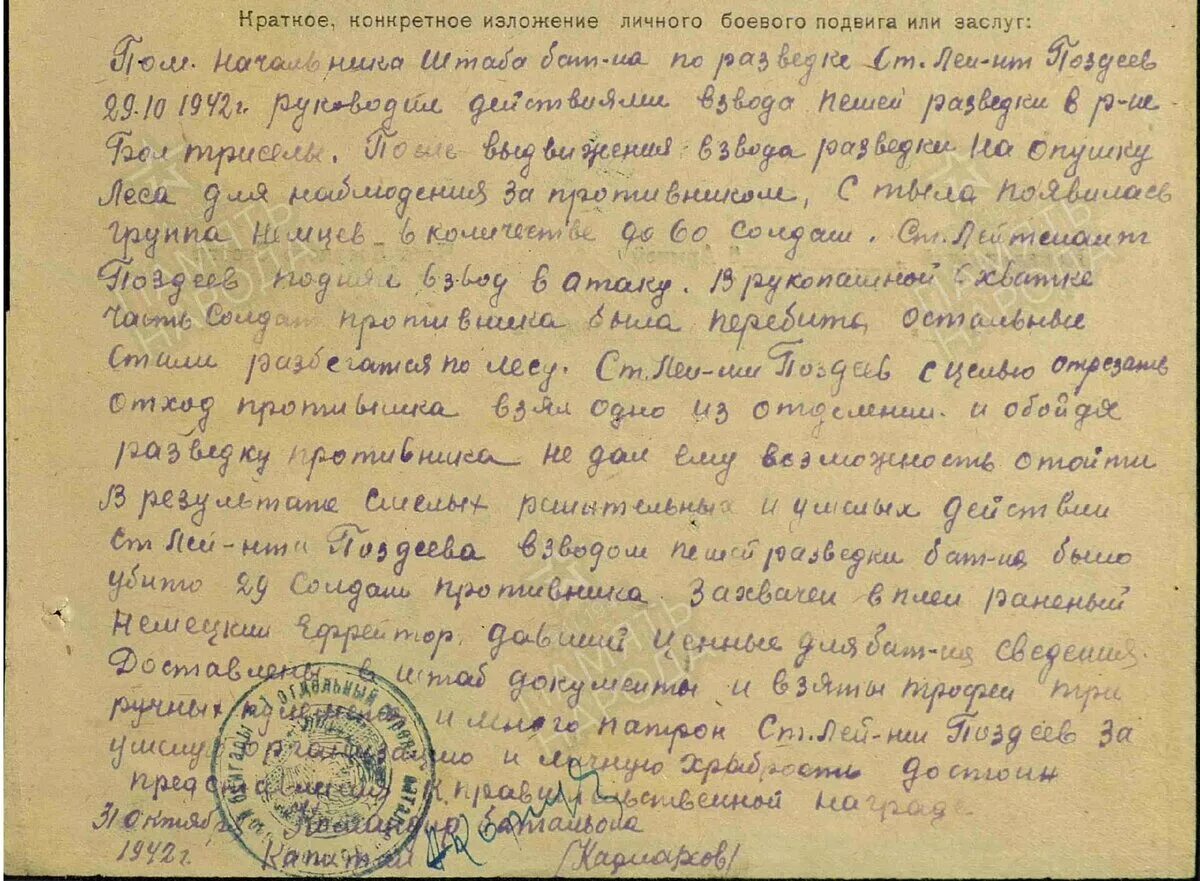 Краткое, конкретное изложение личного боевого подвига или заслуг:
Пом. Начальника Штаба бат-на по разведке Ст. Лей-нт Поздеев
29.10 1942г. руководил действиями взвода пешей разведки в р-не
Бол. После выдвижения взвода разведки на опушку
Леса для наблюдения за противником, С тыла появилась
группа Немцев в количестве до 60 Солдат. Ст. Лейтенант
Поздеев поднял взвод в атаку. В рукопашной схватке
часть Солдат противника была перебита, остальные
стали разбегатся по лесу. Ст. Лей-нт Поздеев с целью отрезать
отход противника взял одно из отделений и обойдя
разведку противника не дал ему возможность отойти
В результате смелых решительных и умелых действий
Ст Лей-нта Поздеева взводом пешей разведки бат-на было
убито 29 Солдат противника. Захвачен в плен раненый
Немецкий Ефрейтор, давший ценные для бат-на сведения.
Доставлены в штаб документы и взяты трофеи три
ручных пулемета и много патрон Ст. Лей-нт Поздеев за
умелую организацию и личную храбрость достоин
представления к правительственной награде
31 октября Командир батальона
1942г. Капитан
ПАМЯТЬ НАРОДА
ПАМЯТЬ НАРОДА
ПАМЯТЬ НАРОДА